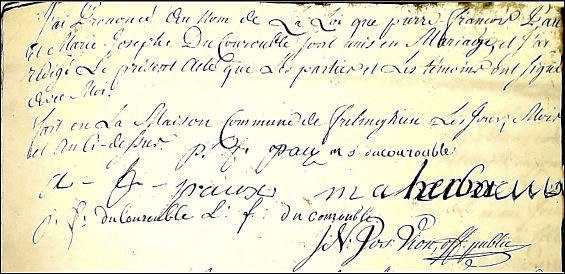 J'ai Prononcé Au Nom de La Loi que pierre francois Pau
et Marie Josephe Du Courouble sont unis en Mariage, et J'ai
redigé Le présent Acte que Les parties et Les témoins ont signé
avec Moi.
fait en La Maison Commune de frelinghien Les Jour, Mois
et An Ci-dessus.
p. f. pau m s. ducourouble
a - f - paux m a herbaux
j. f. ducourouble L: f: du courouble
J N. Jos. off. public